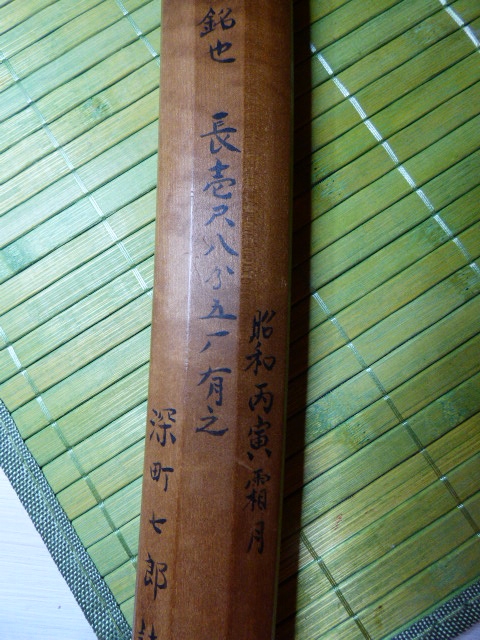 昭和丙寅霜月
銘也 長壱尺八分五厂有之
深町七郎